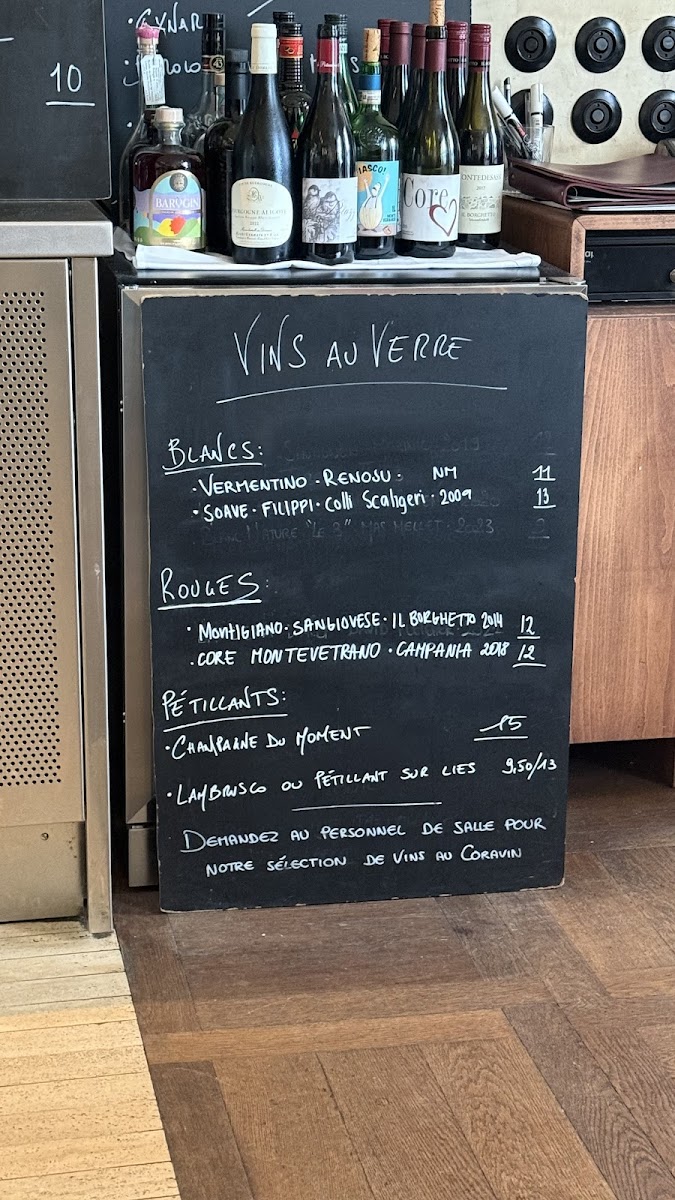 10
CYNAR
43
BARUGIN
BOURGOGNE ALIGOTÉ
FIASCO!
Core
MONTEDESASSI
IL BORGHETTO
VINS AU VERRE
BLANCS:
· VERMENTINO · RENOSU · NM 11
· SOAVE · FILIPPI · Colli Scaligeri · 2009 13
BLANC NATURE "LE B" MAS MELLET · 2023
ROUGES:
· MONTIGIANO · SANGIOVESE · IL BORGHETTO 2014 12
· CORE MONTEVETRANO · CAMPANIA 2018 12
PÉTILLANTS:
· CHAMPAGNE DU MOMENT 15
· LAMBRUSCO OU PÉTILLANT SUR LIES 9,50/13
DEMANDEZ AU PERSONNEL DE SALLE POUR
NOTRE SÉLECTION DE VINS AU CORAVIN